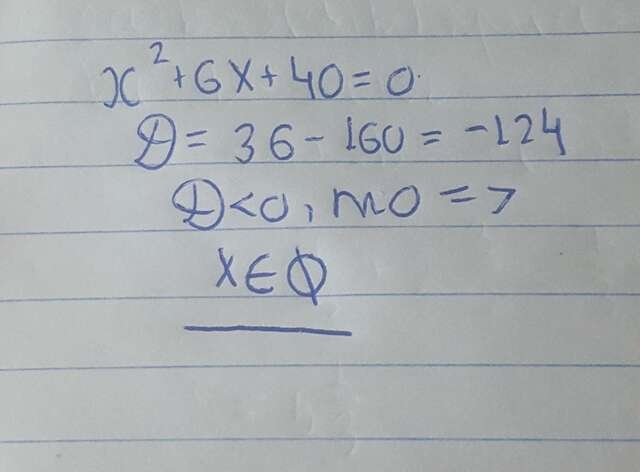 x²+6x+40=0
D=36-160=-124
D<0, то =>
x∈∅